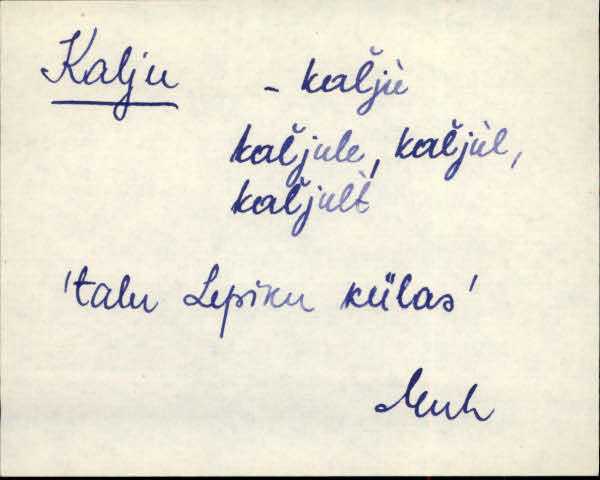 Kalju - kaľjù
kaľjule, kaľjùl,
kaľjult̀
'talu Lepiku külas'
Muh